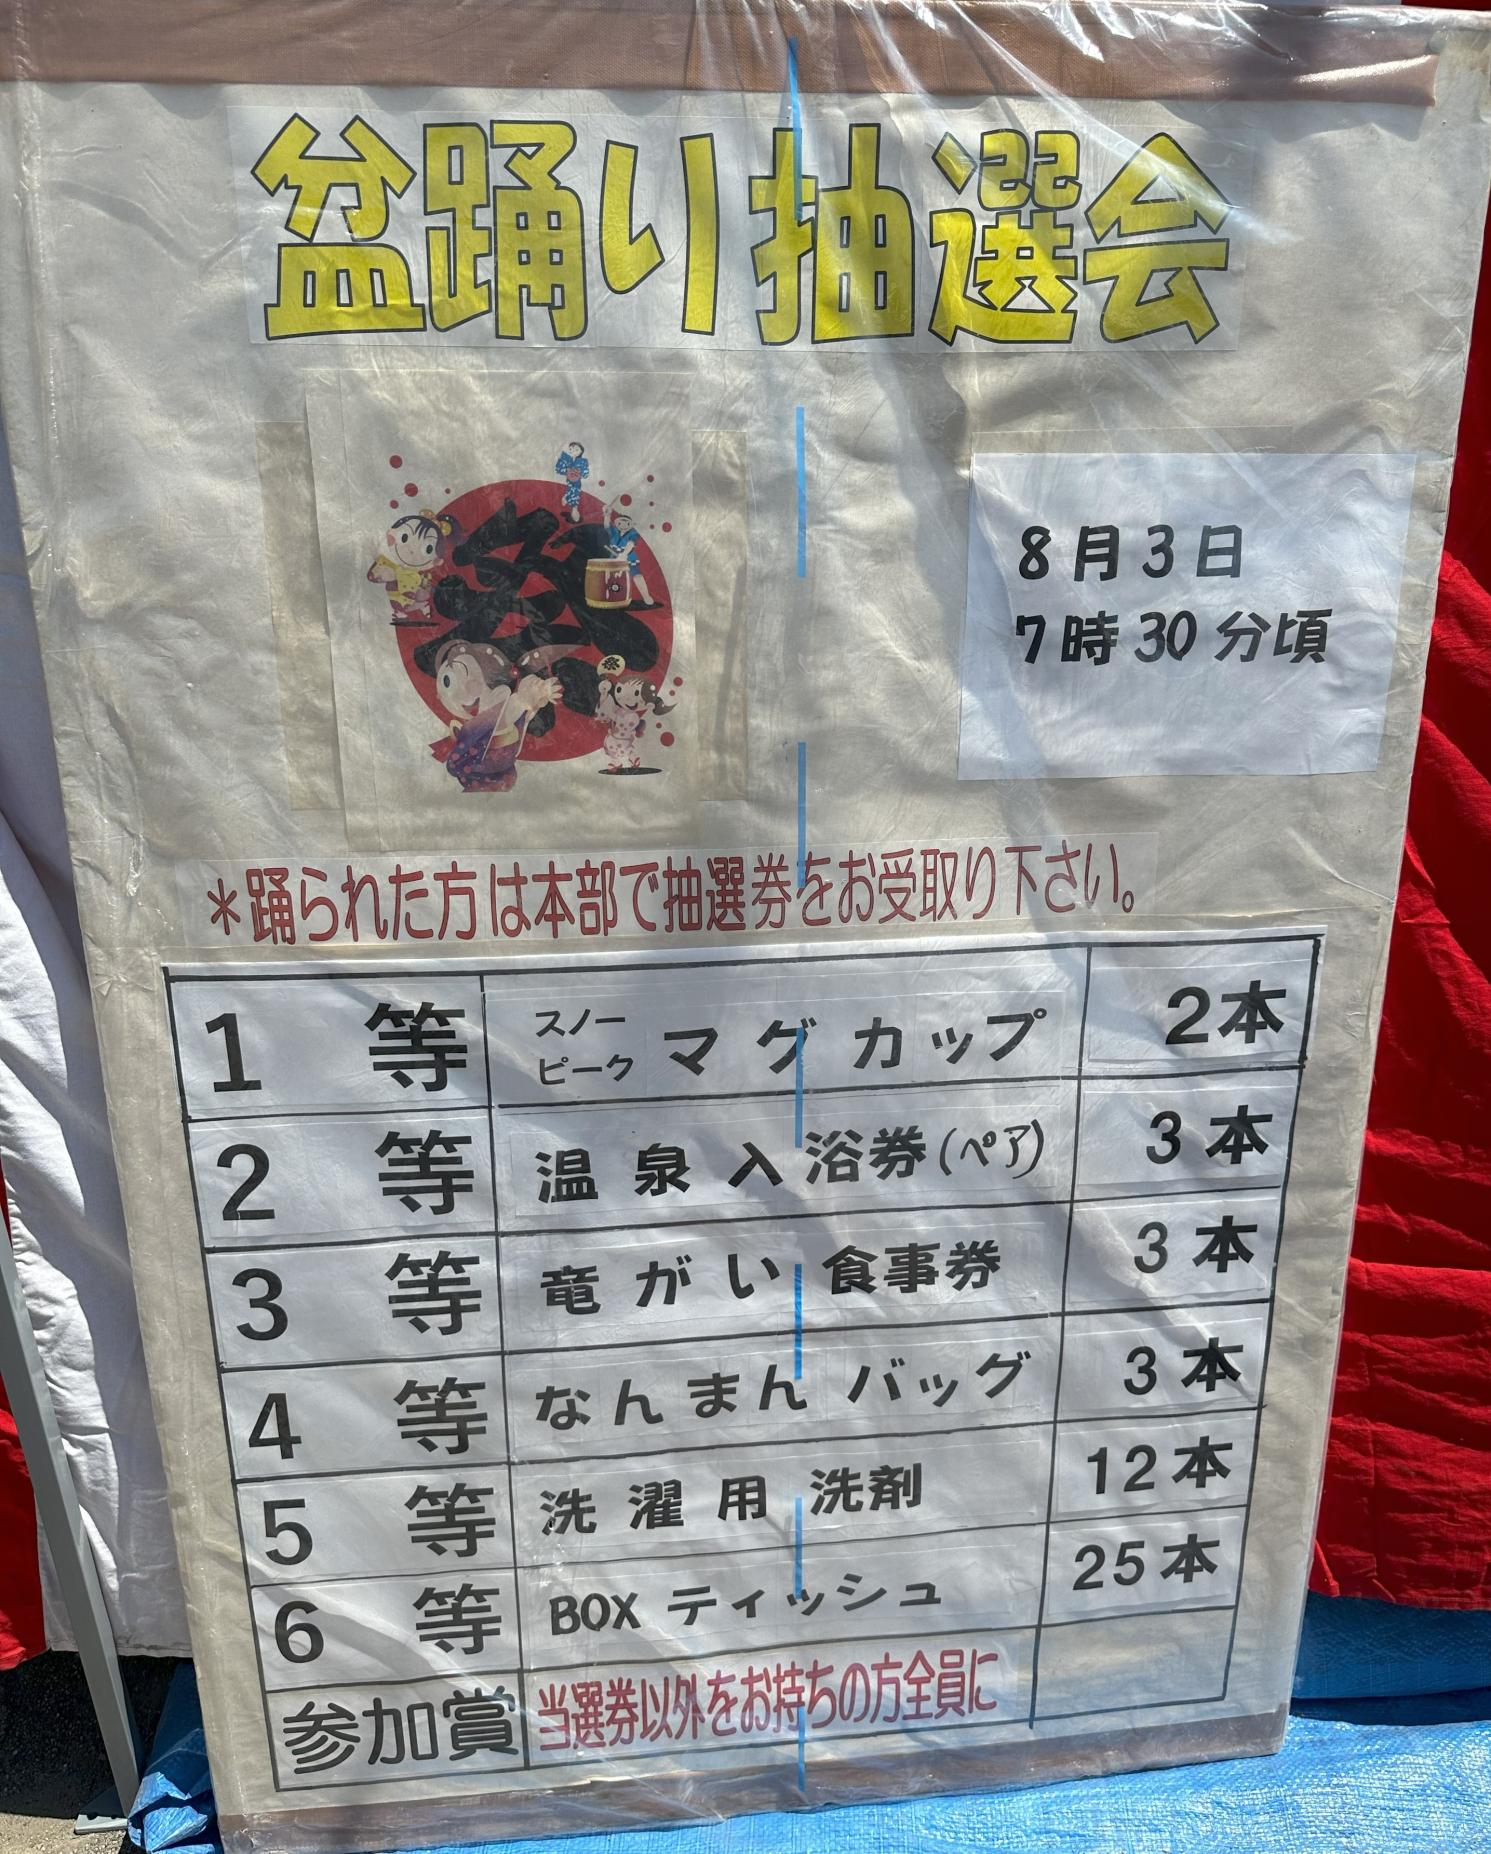 盆踊り抽選会
祭
祭
8月3日
7時30分頃
*踊られた方は本部で抽選券をお受取り下さい。
1等 スノーピーク マグカップ 2本
2等 温泉入浴券(ペア) 3本
3等 竜がい 食事券 3本
4等 なんまん バッグ 3本
5等 洗濯用 洗剤 12本
6等 BOX ティッシュ 25本
参加賞 当選券以外をお持ちの方全員に